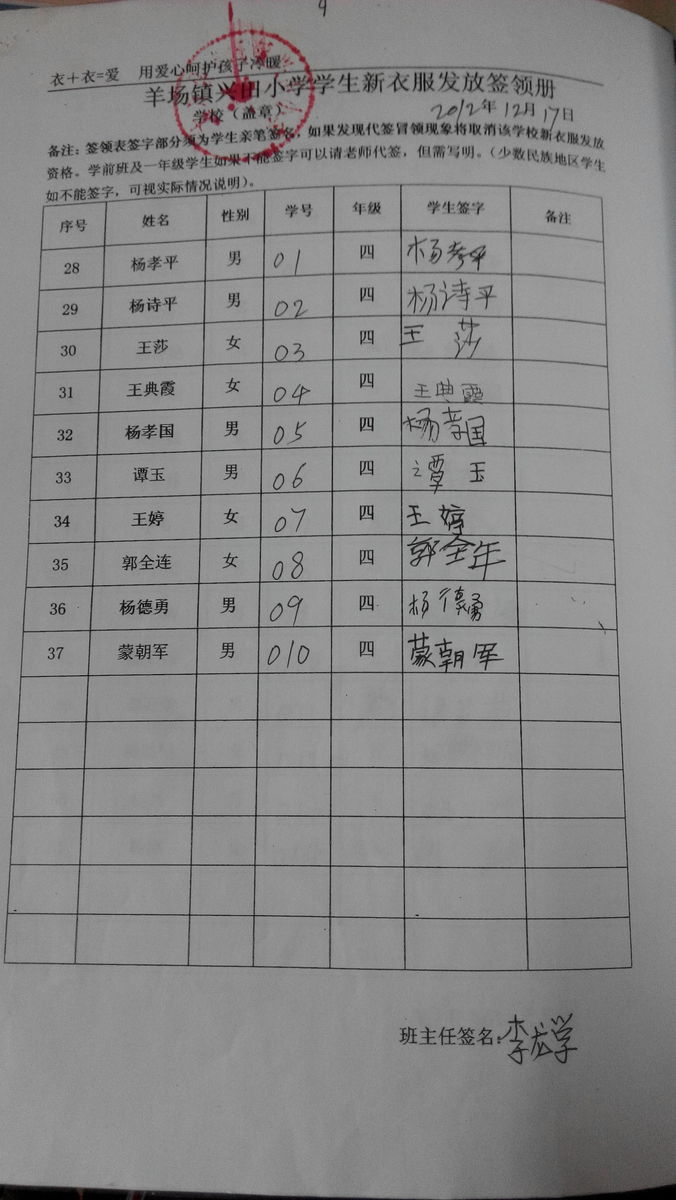 9
衣＋衣=爱 用爱心呵护孩子冷暖
羊场镇兴田小学学生新衣服发放签领册
学校（盖章） 2012年12月17日
备注：签领表签字部分须为学生亲笔签名，如果发现代签冒领现象将取消该学校新衣服发放
资格。学前班及一年级学生如果不能签字可以请老师代签，但需写明。（少数民族地区学生
如不能签字，可视实际情况说明）。
序号 姓名 性别 学号 年级 学生签字 备注
28 杨孝平 男 01 四 杨孝平
29 杨诗平 男 02 四 杨诗平
30 王莎 女 03 四 王莎
31 王典霞 女 04 四 王典霞
32 杨孝国 男 05 四 杨孝国
33 谭玉 男 06 四 谭玉
34 王婷 女 07 四 王婷
35 郭全连 女 08 四 郭全年
36 杨德勇 男 09 四 杨德勇
37 蒙朝军 男 010 四 蒙朝军
班主任签名：李龙学